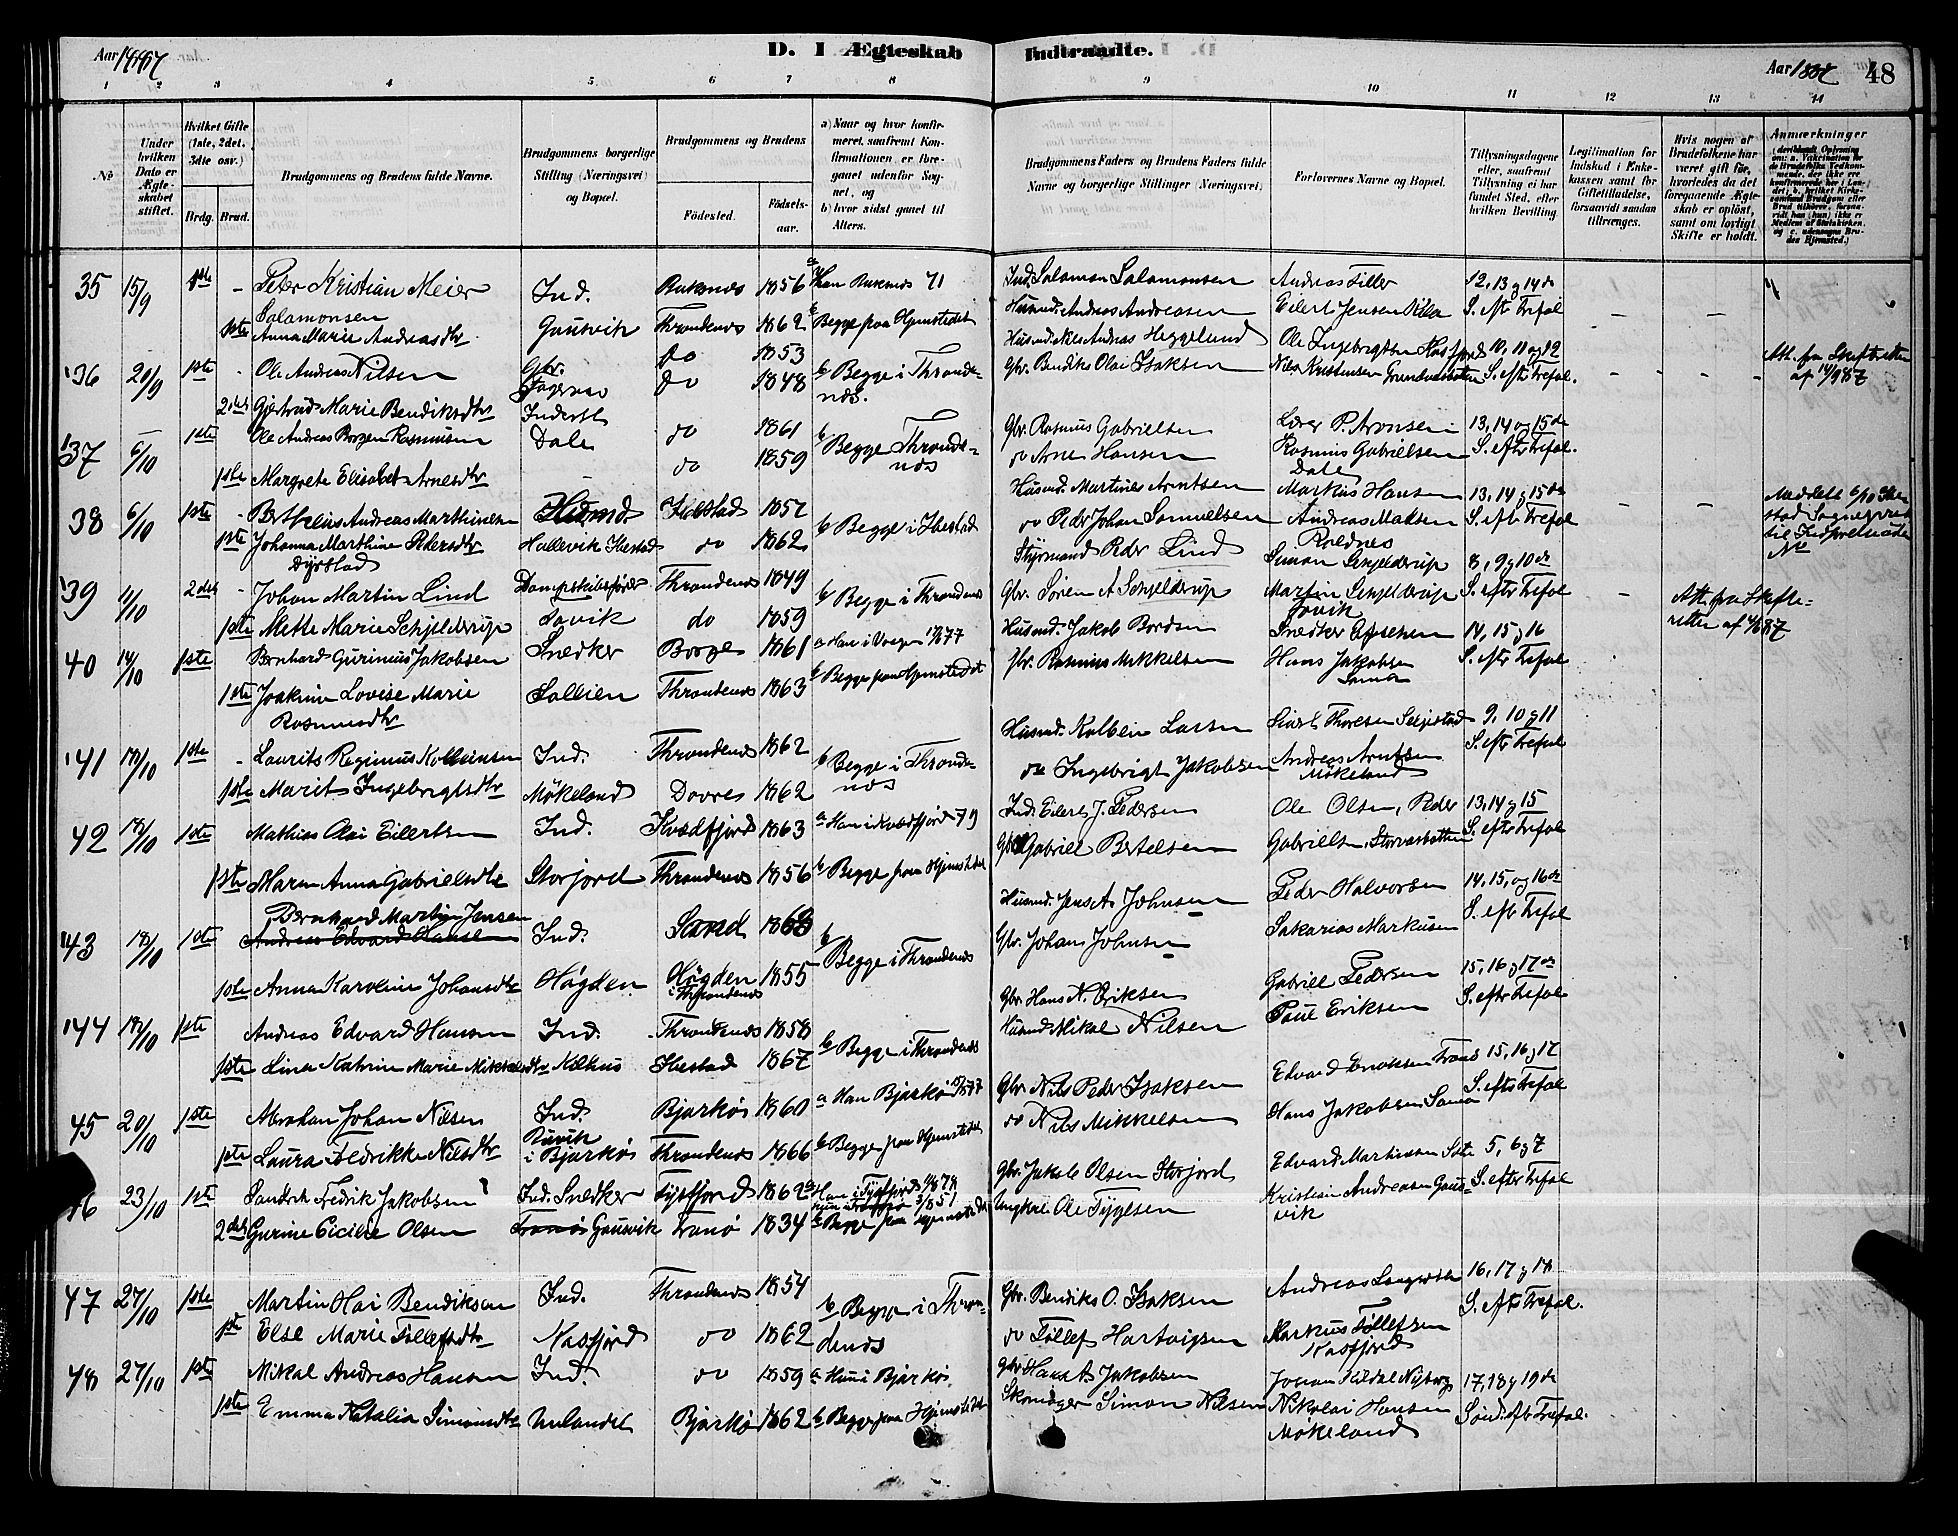 D. I Ægteskab Indtraadte.
Aar 1887
Aar 1887 48
1 2 3 4 5 6 7 8 9 10 11 12 13 14
No
Under hvilken Dato er Ægteskabet stiftet.
Hvilket Gifte (1ste, 2det, 3die osv.)
Brdg. Brud.
Brudgommens og Brudens fulde Navne.
Brudgommens borgerlige Stilling (Næringsvei) og Bopæl.
Brudgommens og Brudens
Födested. Födselsaar.
a) Naar og hvor konfirmeret, saafremt Konfirmationen er foregaaet udenfor Sognet, og
b) hvor sidst gaaet til Alters.
Brudgommens Faders og Brudens Faders fulde Navne og borgerlige Stillinger (Næringsvei)
Forlovernes Navne og Bopæl.
Tillysningsdagene eller, saafremt Tillysning ei har fundet Sted, efter hvilken Bevilling
Legitimation for Indskud i Enkekassen samt for Giftetilladelse, forsaavidt saadan tiltrænges.
Hvis nogen af Brudefolkene har været gift för, hvorledes da det foregaaende Ægteskab er oplöst, samt om lovligt Skifte er holdt.
Anmærkninger
35 15/9 1ste - Peter Kristian Meier Ind. Ruksnes 1856 Han Ruksnes 71 Ind. Salamon Salamonsen Andreas Tiller 12, 13 og 14de
Salamonsen
1ste Anna Marie Andreasdtr Gausvik Throndenes 1862 b Begge paa Hjemstedet Husmd. Andreas Andreasen Eilert Jensen S. eftr Trefol
36 20/9 1ste - Ole Andreas Nilsen Gbr. do 1853 b Begge i Thronde- Husmd. Nils Andreas Heggelund Ole Ingebrigtsen Kasfjord 10, 11 og 12
2det Gjertrud Marie Bendiksdtr Fagernes do 1848 nes. Gbr. Bendiks Olai Isaksen Nils Kristensen S. eftr Trefol. Att. fra Skifteretten
af 14/9 87
37 6/10 1ste Ole Andreas Borgen Rasmussen Inderst do 1861 b Begge Thronde- Gbr. Rasmus Gabrielsen P. Aronsen 13, 14 og 15de
1ste Margrete Elisabet Arnesdtr Dale do 1859 nes do Arne Hansen Rasmus Gabrielsen S. eftr Trefol.
Dale
38 6/10 1ste - Berthelius Andreas Marthinsen Husmd. Ibestad 1857 b Begge i Ibestad Husmd. Martines Arntsen Markus Hansen 13, 14 og 15de
1ste Johanna Marthine Pedersdtr Hallevik Ibestad do 1862 do Peder Johan Samuelsen Andreas Madsen S. eftr Trefol
Dyrstad Roldnes
39 11/10 2det - Johan Martin Lind Dampskibsfører Throndenes 1849 b Begge i Throndenes Styrmand Peder Lind Simon Schjelderup 8, 9 og 10de
1ste Mette Marie Schjelderup Sovik do 1859 Gbr. Sören A Schjelderup Martin Schjelderup S. eftr Trefol Att. fra Skifte-
Sovik retten af
40 14/10 1ste Bernhard Gurinius Jakobsen Snedker Borge 1861 a Han i Vaagen 77 Husmd. Jakob Bordsen Snedker 14, 15 og 16
1ste Joakime Lovise Marie Sollien Throndenes 1863 b Begge paa Hjemstedet Gbr. Rasmus Mikkelsen Hans Jakobsen S. eftr Trefol
Rasmusdtr Sama
41 18/10 1ste - Laurits Reginus Kolbeinsen Ind. Throndenes 1862 b Begge i Thronde- Husmd. Kolbein Larsen Thoresen 9, 10 og 11
1ste Marit Ingebrigtsdtr Møkeland Dovre 1862 nes do Ingebrigt Jakobsen Andreas Arntsen S. eftr Trefol
Møkeland
42 18/10 1ste Mathias Olai Eilertsen Ind. Kvædfjord 1863 a Han i Kvædfjord 79 Ind. Eilert J. Pedersen Ole Olsen, Peder 13, 14 og 15
1ste Maren Anna Gabrielsdtr Storjord Throndenes 1856 b Begge paa Hjemstedet Gbr. Gabriel Bertelsen Gabrielsen, Storvasbotten S. eftr Trefol
Bernhard Martin Jensen
43 18/10 1ste Andreas Edvard Hansen Ind. Sand 1860 b Husmd. Jens A Johnsen Peder Halvorsen 14, 15, og 16de
1ste Anna Karoline Johansdtr Høgden Høgden 1855 Begge i Throndenes Gbr. Johan Johnsen Sakarias Markusen S. eftr Trefol
i Throndenes
44 18/10 1ste Andreas Edvard Hansen Ind. Throndenes 1858 b Begge i Throndenes Gbr. Hans N. Eriksen Gabriel Pedersen 15, 16 og 17de
1ste Lina Katrine Marie Mikkelsdtr Kilhus Ibestad 1867 Husmd. Mikal Nilsen Paul Eriksen S. eftr Trefol
45 20/10 1ste Abraham Johan Nilsen Ind. Bjarkø 1860 a Han Bjarkø 77 Gbr. Nils Peder Isaksen Edvard Enoksen 15, 16 og 17
1ste Laura Fredrikke Nilsdtr i Bjarkø Throndenes 1866 b Begge paa Hjemstedet do Nils Mikkelsen Hans Jakobsen Sama S. eftr Trefol
46 23/10 1ste Fredrik Jakobsen Ind. Snedker Tysfjord 1862 Han i Tysfjord Gbr. Jakob Olsen Storjord Edvard Martinsen 5, 6 og 7
2det Gurine Cicilie Olsen Tranö Gausvik Tranö 1834 b Begge paa Hjemstedet Ungkar Ole Tygesen Kristian Andreasen Gaus- S. eftr Trefol
vik
47 27/10 1ste Martin Hai Bendiksen Ind. Throndenes 1854 b Begge i Thron- Gbr. Bendiks O. Isaksen Andreas 16, 17 og 18
1ste Else Marie Tollefsdtr Kasfjord do 1862 denes do Tollef Hartvigsen Markus Tollefsen S. eftr Trefol.
Kasfjord
48 27/10 1ste Mikal Andreas Hansen Ind. do 1859 a Hun i Bjarkø. Gbr. Hans A Jakobsen Johan 17, 18 og 19de
1ste Emma Natalia Simonsdtr Unlandet Bjarkø 1862 b Begge paa Hjemstedet Skomager Simon Nilsen Nikolai Hansen Sönd. eft Trefol.
Møkeland